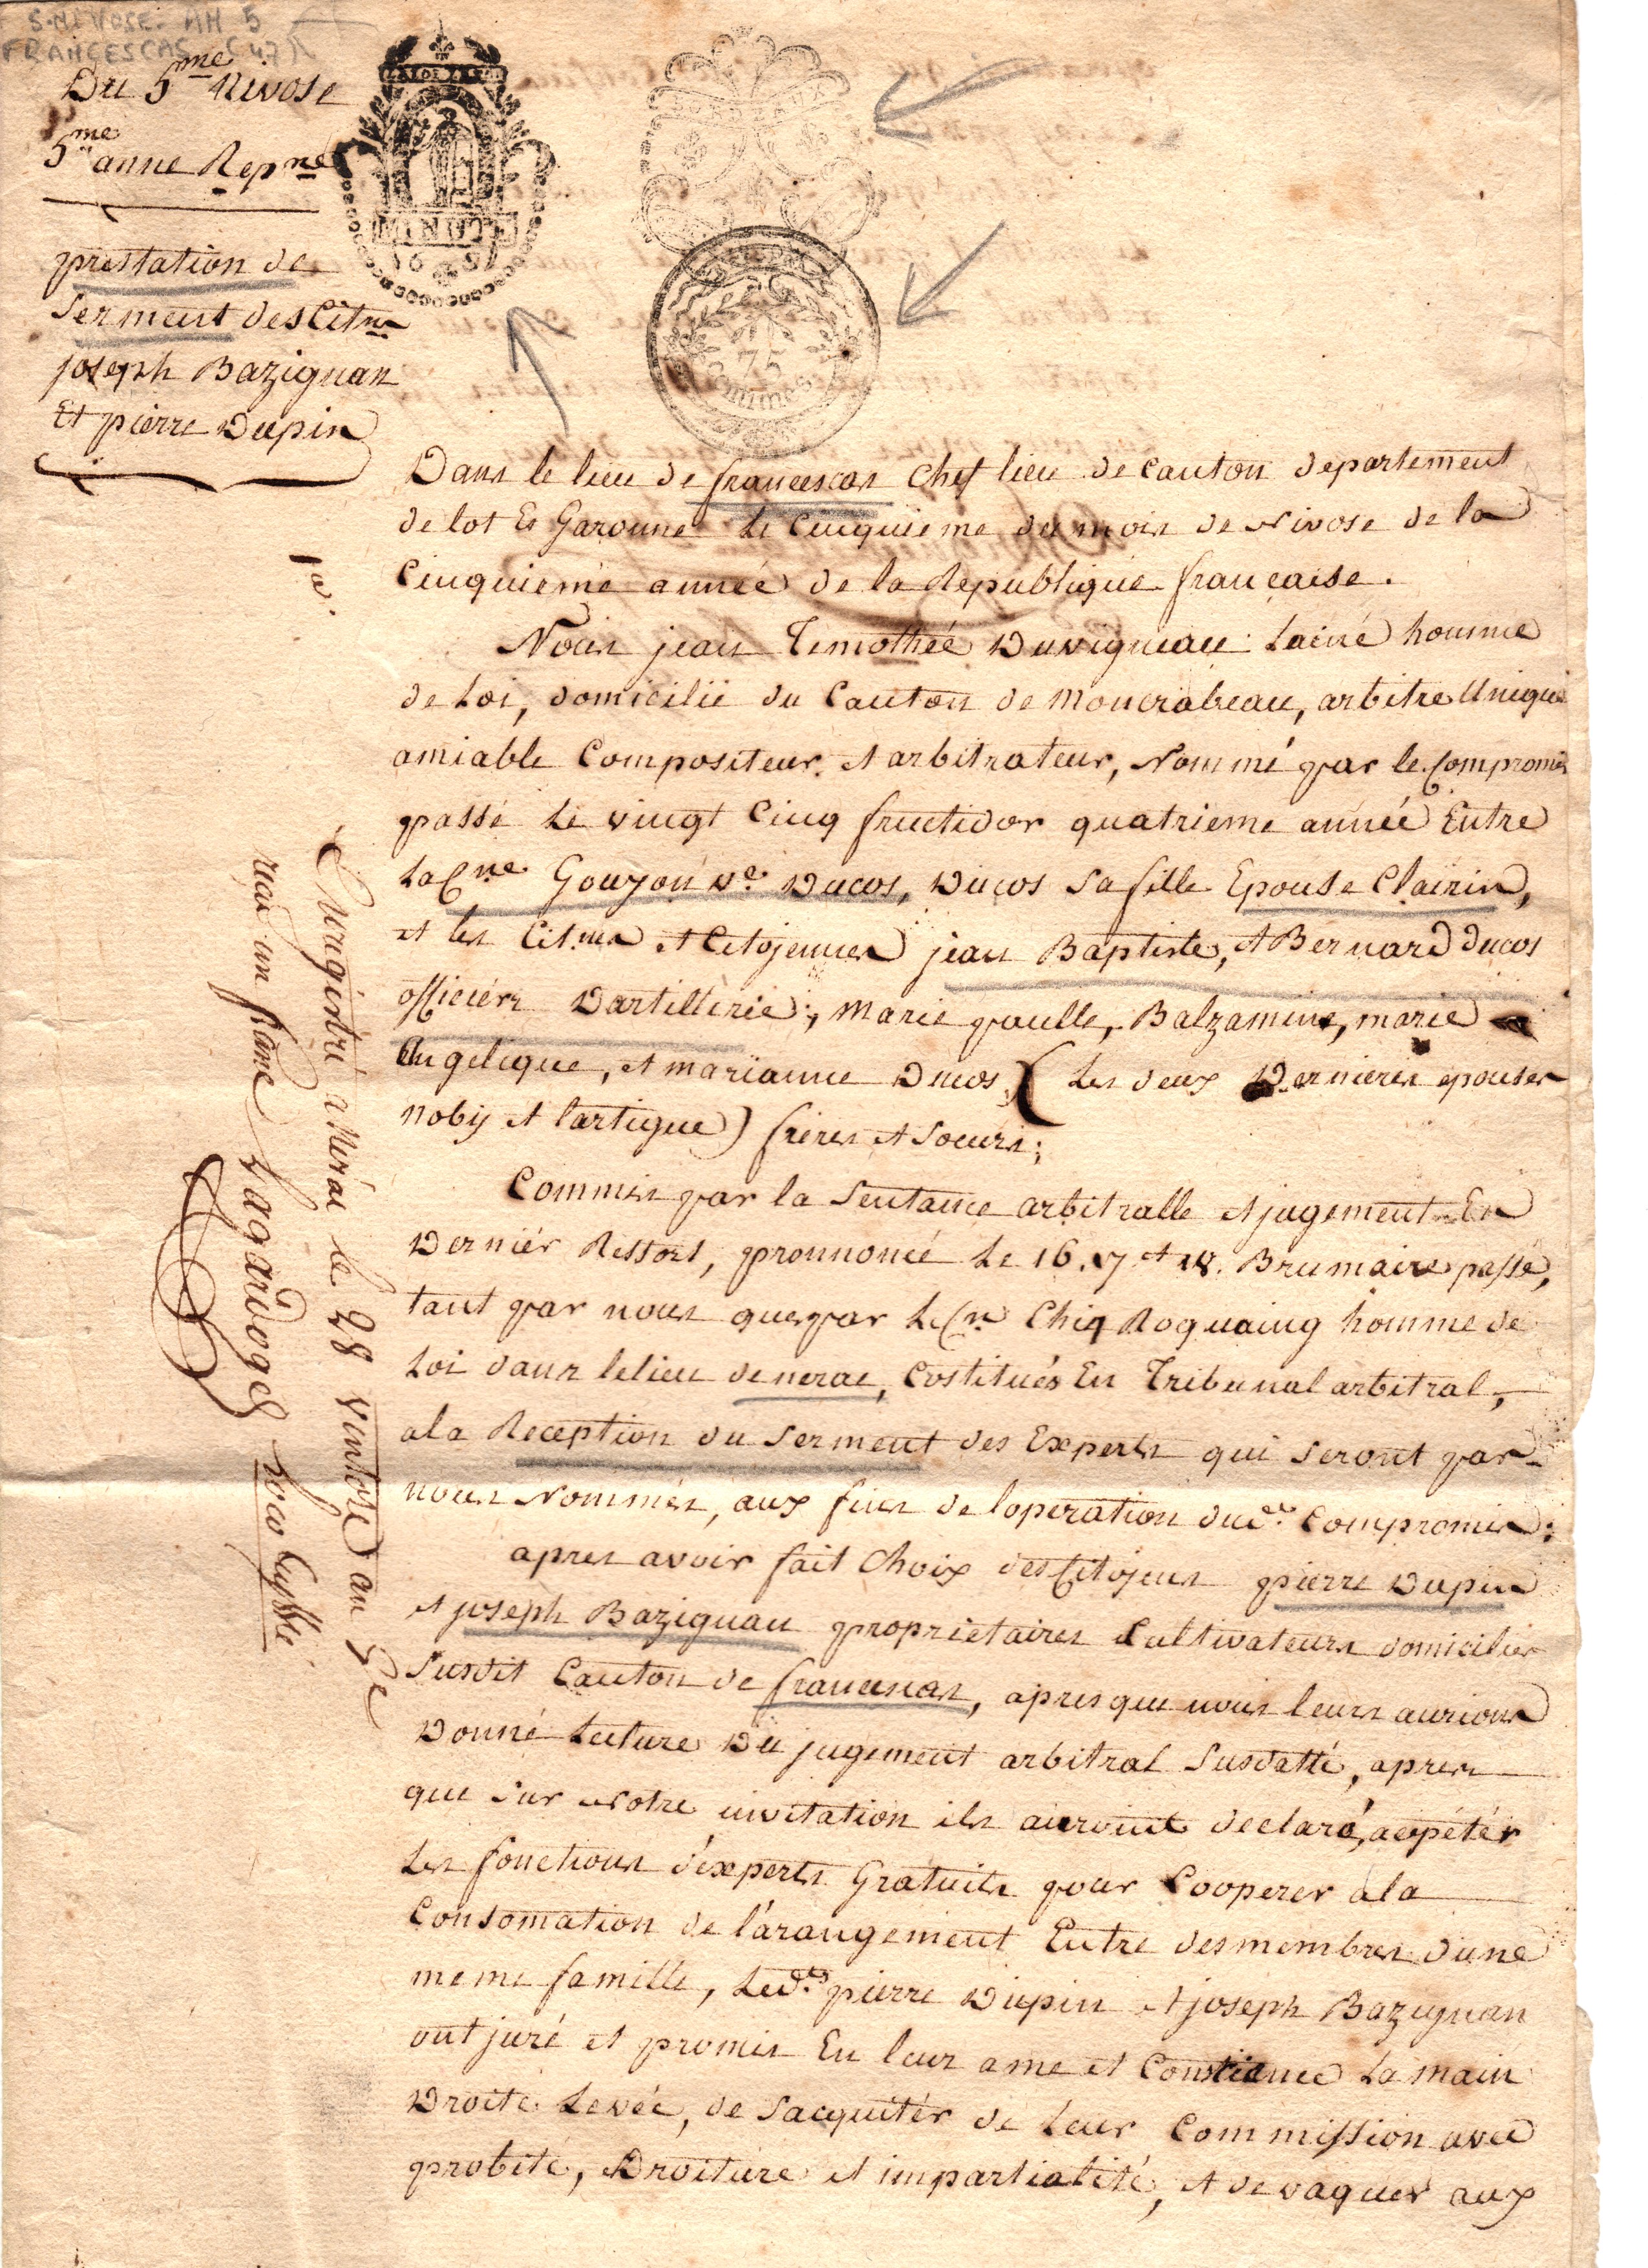 5 NIVOSE. AN 5
FRANCESCAS (47)
Du 5me Nivose
5me anne Repne
prestation de
serment des Citns
joseph Bazignan
Et pierre Dupin
BORDEAUX
MINUTE
75
Dans le lieu de francescas chef lieu de canton departement
de lot Et Garonne Le Cinquieme du mois de Nivose de la
Cinquieme année de la Republique française.
Nous jean Timothéé Duvigneau Lainé homme
de Loi, domicilié du Canton de Moncrabeau, arbitre Unique
amiable Compositeur et arbitrateur, Nommé par le Compromis
passé Le vingt Cinq fructidor quatrieme année Entre
La Cne Goujon ve Ducos, Ducos sa fille Epouse Clairin,
et les Cit.ens et Citojennes jean Baptiste, et Bernard Ducos
officiers Dartillerie, Marie paulle, Balzamine, marie
Angelique, et marianne Ducos, (Les deux Dernieres epouses
nobij et lartigue) freres et soeurs;
Commis par la Sentance arbitralle et jugement En
Dernier Ressort, pronnoncé Le 16. 17 et 18. Brumaire passé,
tant par nous que par Le Cn Chiq Roquaing homme de
Loi dans le lieu de nerac, Costitués En Tribunal arbitral,
a la Reception du Serment des Experts qui seront par
nous Nommés, aux fins de loperation dud. Compromis;
apres avoir fait choix des Citojens pierre Dupin
et joseph Bazignan proprietaires Cultivateurs domiciliés
susdit Canton de francescas, apres que nous leurs aurions
Donné Lecture Du jugement arbitral Susdatté, apres
que sur Notre invitation ils auroint declaré, acpétér
Les fonctions d'experts Gratuits pour Cooperer a la
Consomation de l'arangement Entre des membres d'une
meme famille, Led.ts pierre Dupin et joseph Bazignan
ont juré et promis En leur ame et Constiance La main
Droite Levée, de Sacquitér de Leur Commission avec
probité, Droiture et impartialité, et de vaquer aux
Enregistré a Nérac le 28 ventose an 5e
reçu un franc Lagardoges